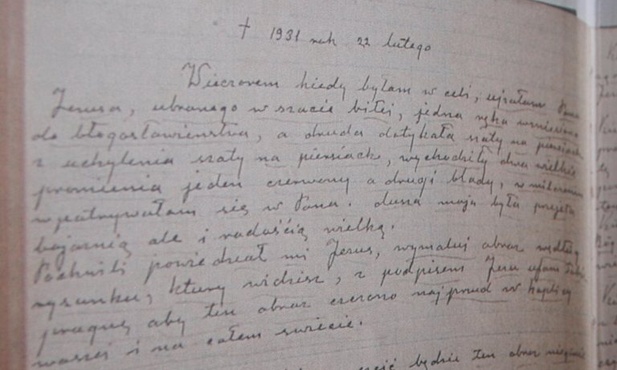 † 1931 rok 22 lutego
Wieczorem kiedy byłam w celi, ujrzałam Pana
Jezusa, ubranego w szacie białej, jedna ręka wzniesiona
do błogosławieństwa, a druga dotykała szaty na piersiach
z uchylenia szaty na piersiach, wychodziły dwa wielkie
promienia jeden czerwony a drugi blady, w milczeniu
wpatrywałam się w Pana. dusza moja była przejęta
bojaźnią ale i radością wielką.
Po chwili powiedział mi Jezus, wymaluj obraz według
rysunku, który widzisz, z podpisem Jezu ufam Tobie
pragnę aby ten obraz czczono najprzód w kaplicy
waszej i na całem świecie.
będzie ten obraz